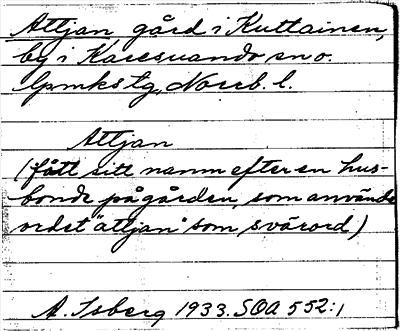 Attjan, gård i Kuttainen,
by i Karesuando sn o.
lpmkstg, Norrb. l.
Attjan
(fått sitt namn efter en hus-
bonde på gården, som använde
ordet "attjan" som svärord)
A. Isberg 1933. SOA 552:1